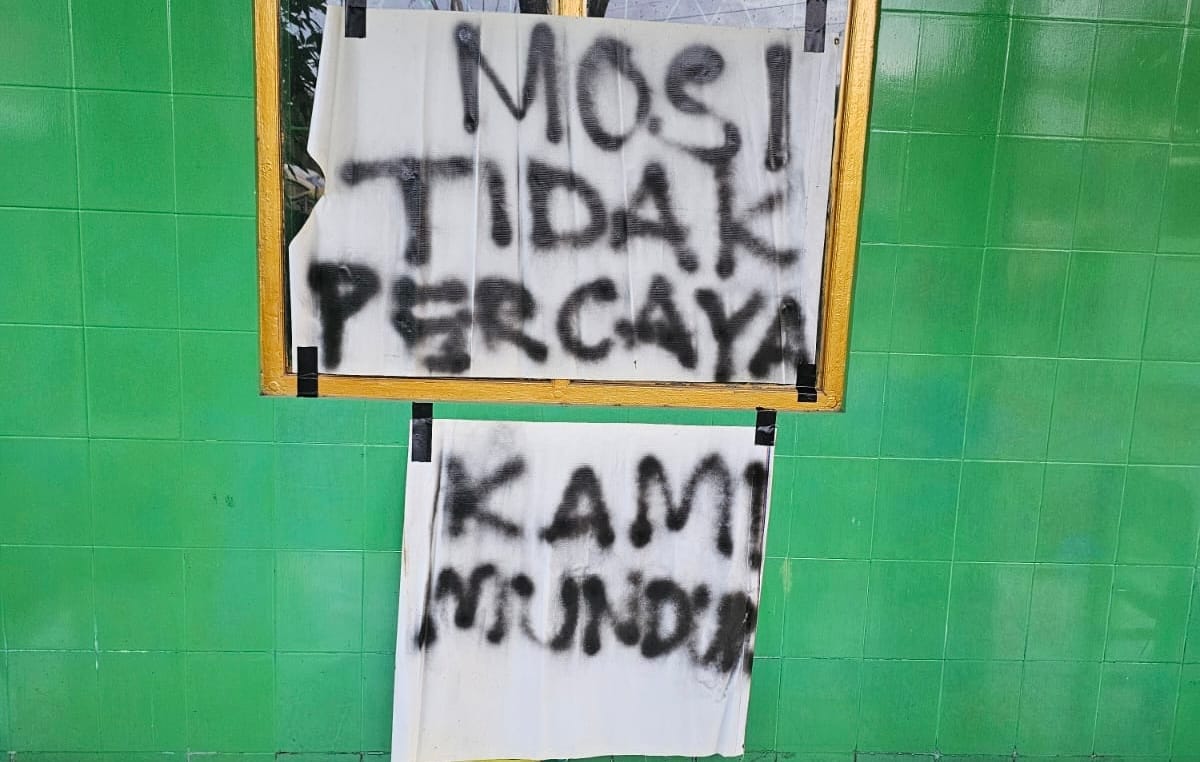 MOSI
TIDAK
PERCAYA
KAMI
MUNDUR